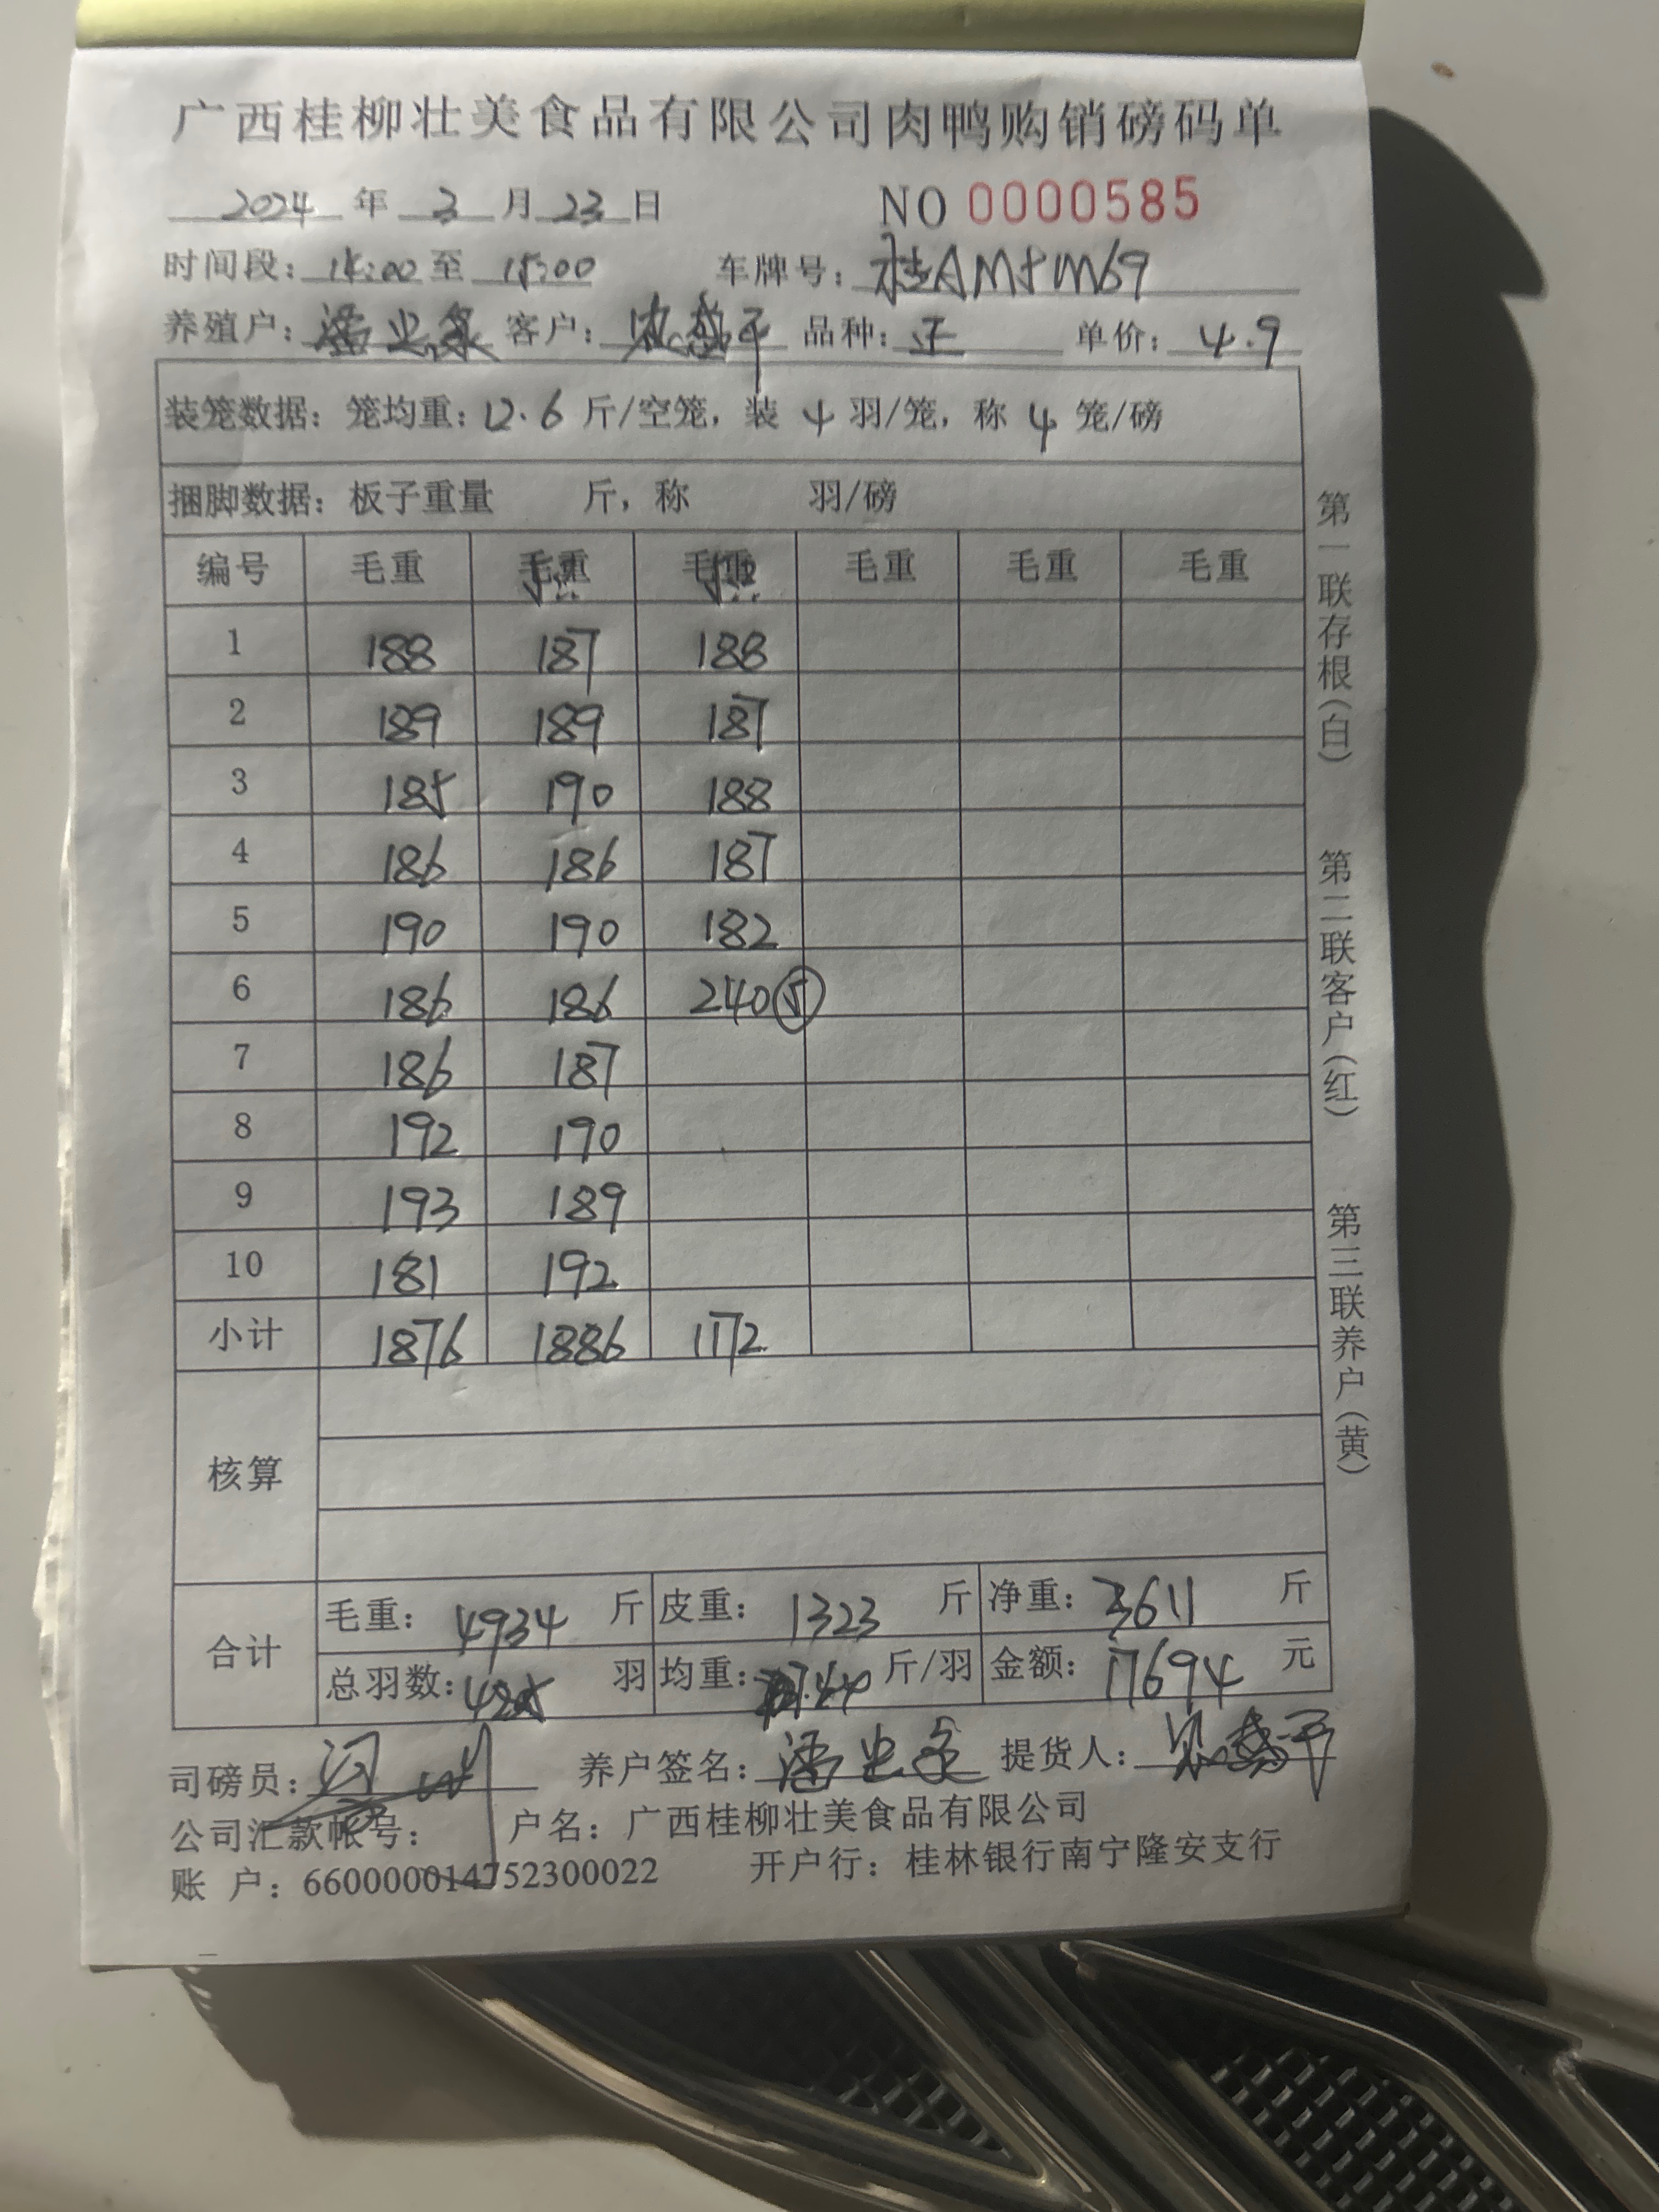 广西桂柳壮美食品有限公司肉鸭购销磅码单
2024 年 3 月 23 日 NO 0000585
时间段: 至 车牌号: 桂A
养殖户: 潘 客户: 品种: 正 单价: 4.9
装笼数据: 笼均重: 12.6 斤/空笼, 装 4 羽/笼, 称 4 笼/磅
捆脚数据: 板子重量 斤, 称 羽/磅
编号 毛重 毛重 毛重 毛重 毛重 毛重
1 188 187 188
2 189 189 187
3 185 190 188
4 186 186 187
5 190 190 182
6 186 186 240 ⑤
7 186 187
8 192 190
9 193 189
10 181 192
小计 1876 1886 1172
核算
合计 毛重: 4934 斤 皮重: 1323 斤 净重: 3611 斤
总羽数: 斤/羽 羽 均重: 金额: 17694 元
司磅员: 养户签名: 潘 提货人:
公司汇款帐号: 户名: 广西桂柳壮美食品有限公司
账 户: 660000014752300022 开户行: 桂林银行南宁隆安支行
第一联存根(白)
第二联客户(红)
第三联养户(黄)